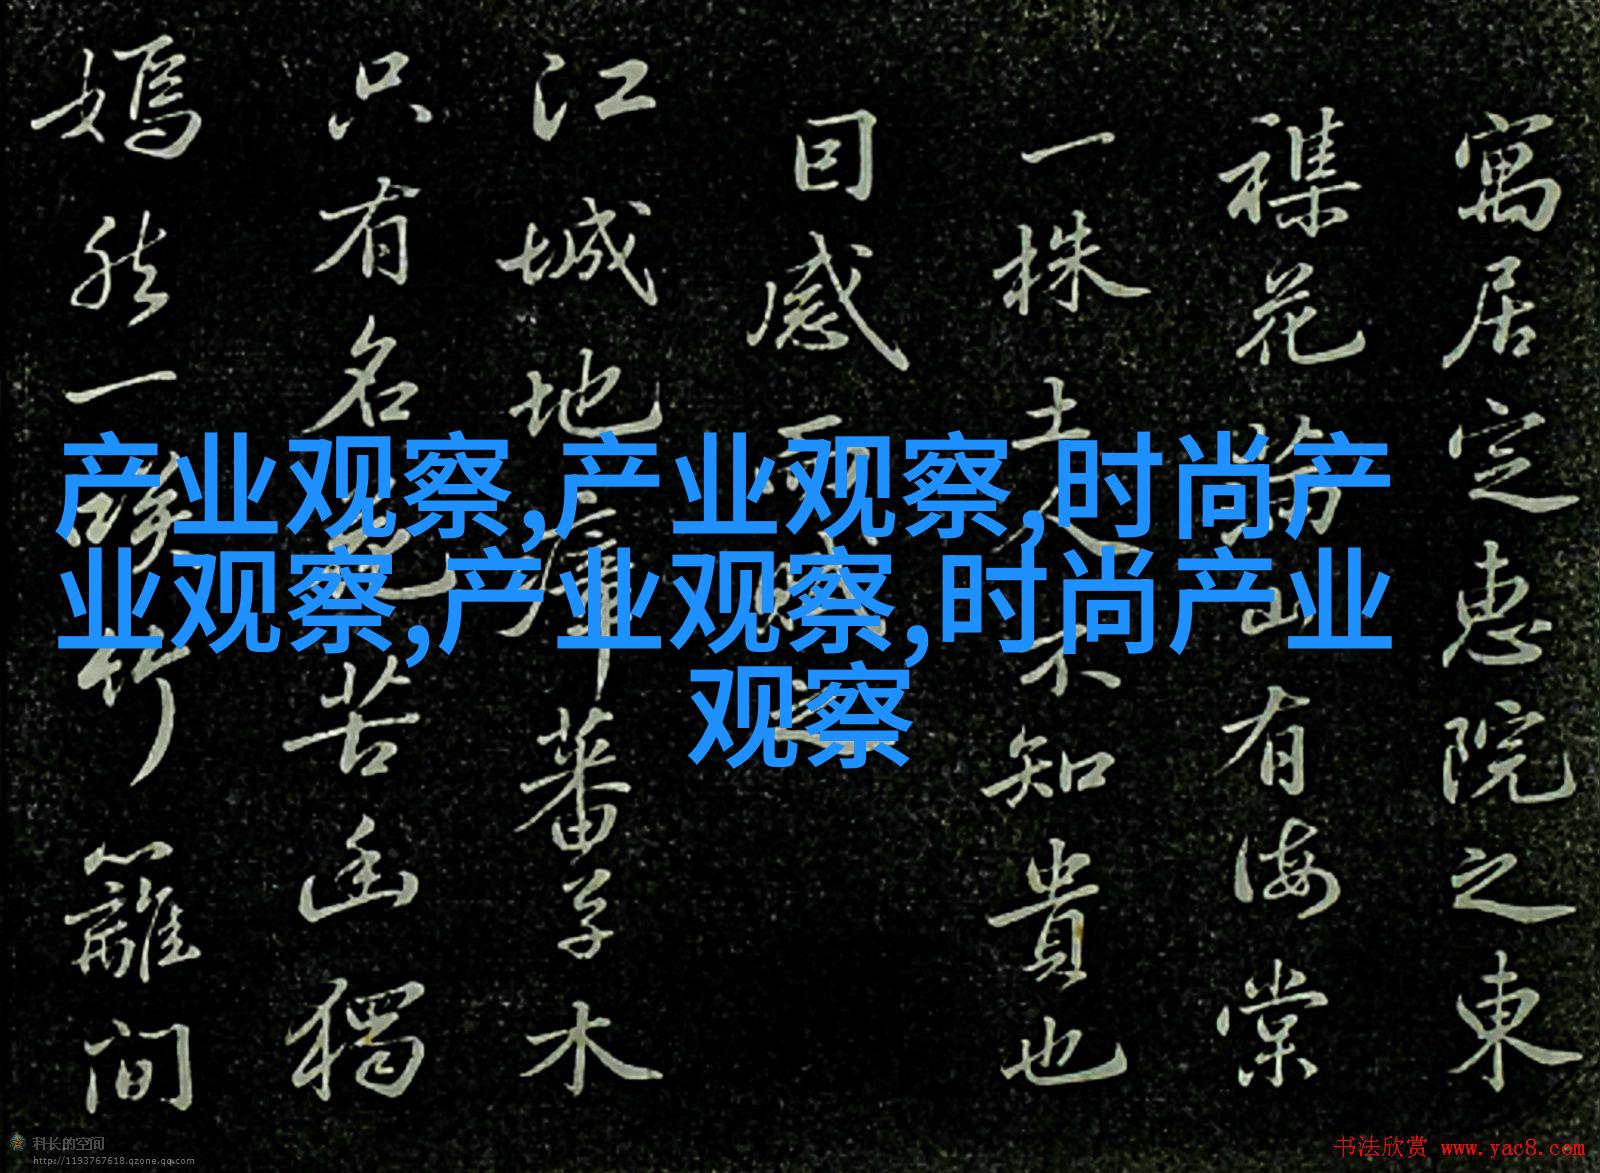 产业观察,产业观察,时尚产
业观察,产业观察,时尚产业
观察
寓居定惠院之東
襍花滿山有海棠
一株土人不知貴也
囙感而
江城地瘴蕃草木
只有名花苦幽獨
嫣然一笑竹籬間
科长的空间
http://1193767618.qzone.qq.com
书法欣赏 www.yac8.com